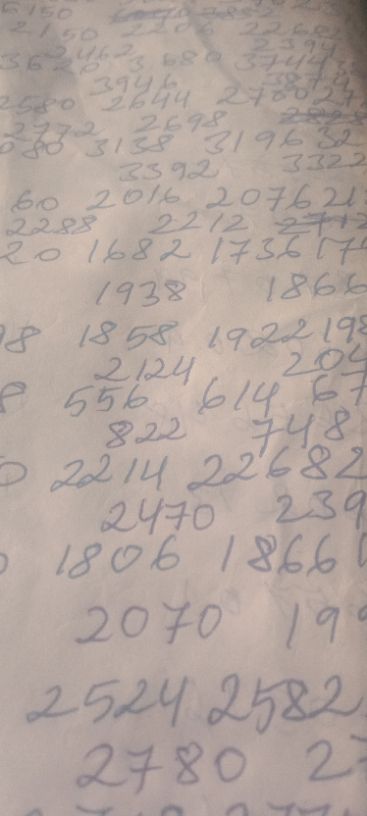 5150
2150 2206 226
2462 2394
3620 3680 3744
3946 387
2580 2644 2700 27
2772 2698
080 3138 3196 32
3392 3322
60 2016 2076 21
2288 2212 2712
20 1682 1736 17
1938 1866
98 1858 1922 198
2124 204
8 556 614 67
822 748
0 2214 2268 2
2470 239
1806 1866
2070 19
2524 2582
2780 27